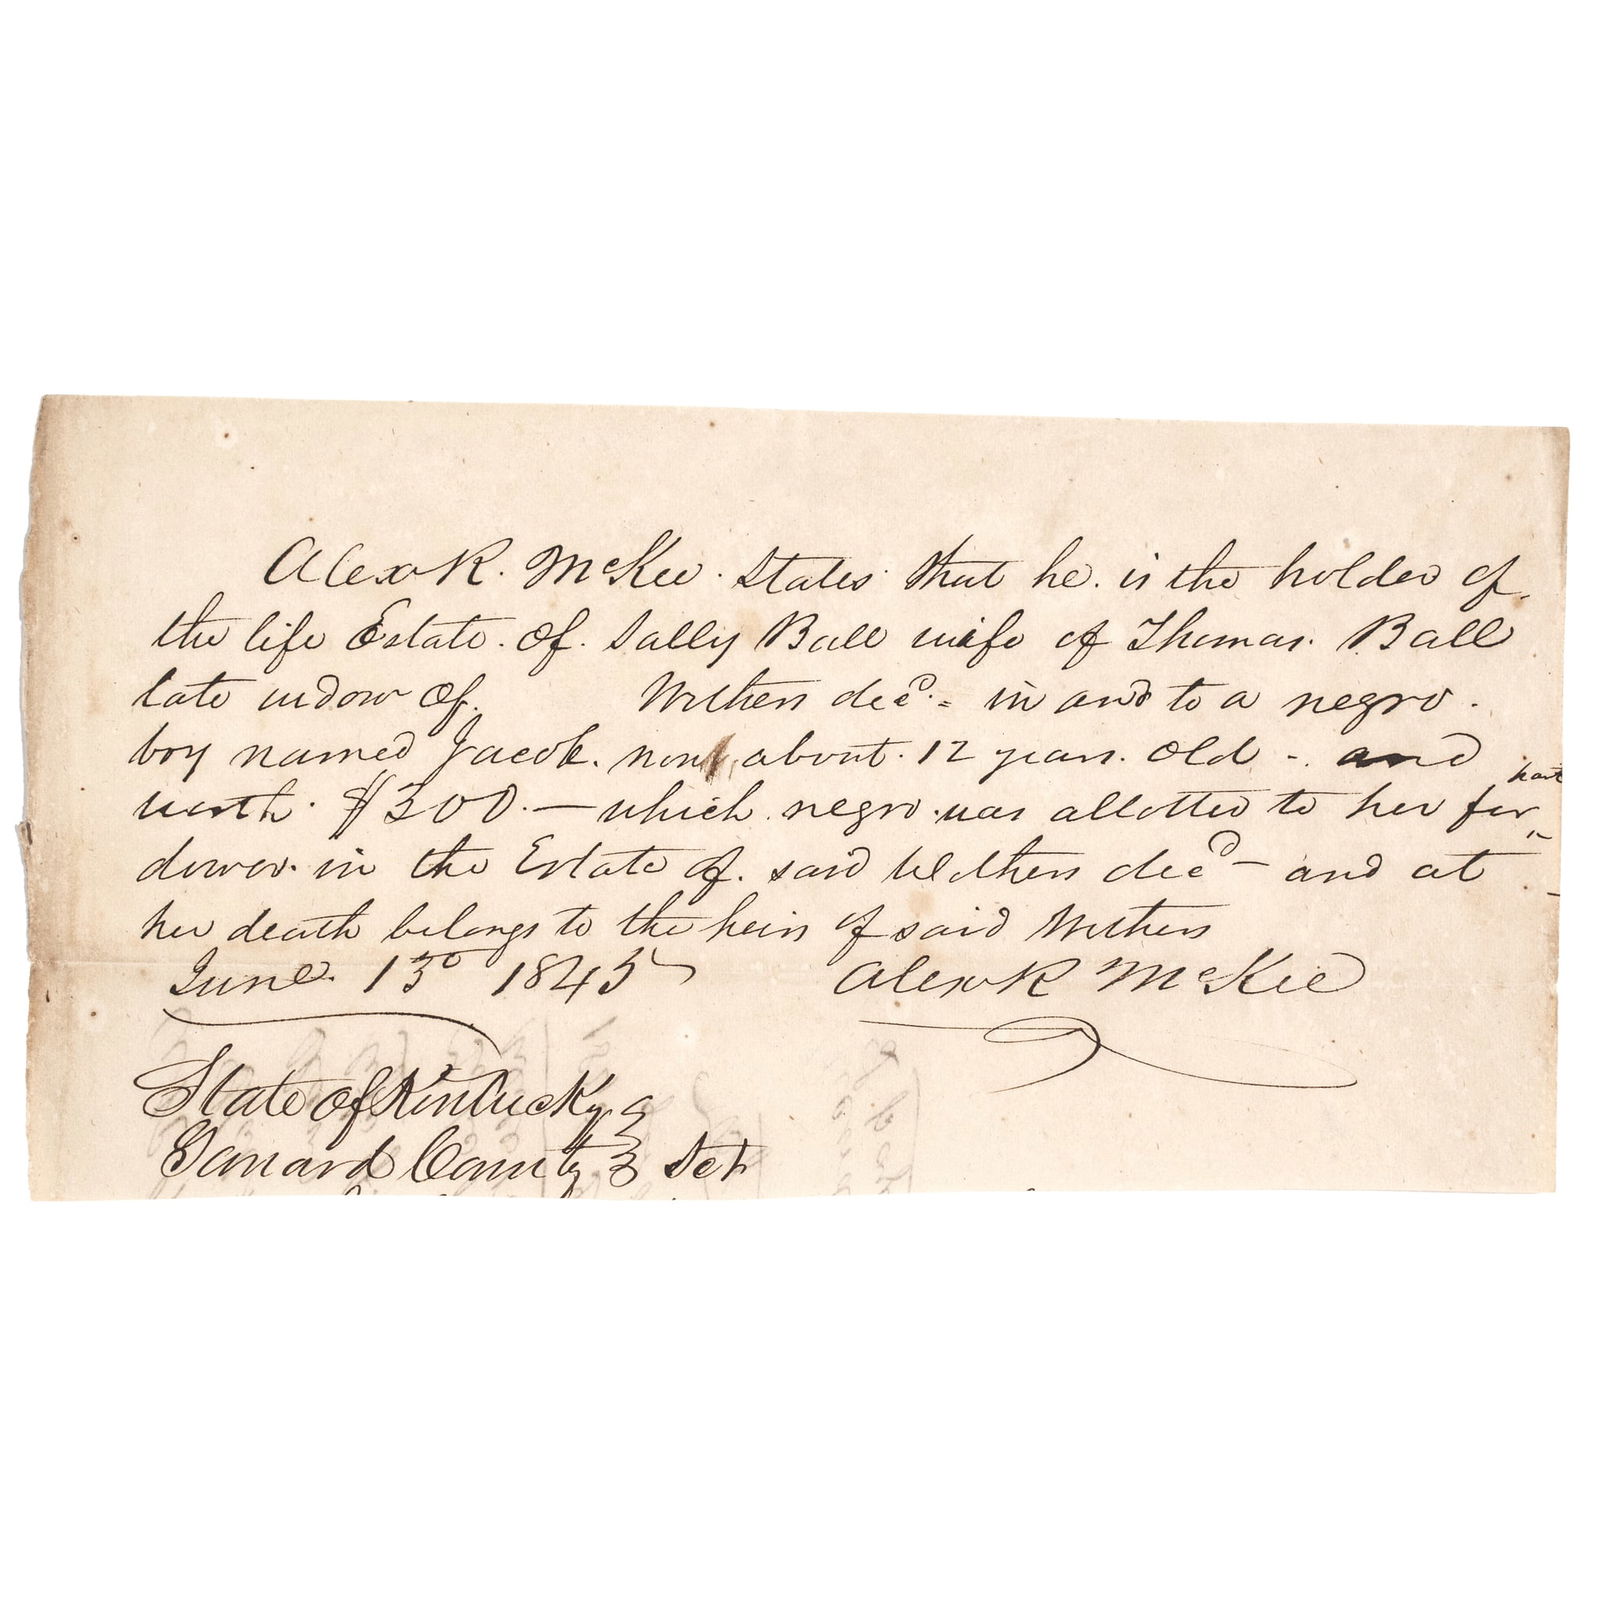 Alex R. McKee. States that he. is the holder of
the life Estate. of. Sally Ball wife of Thomas. Ball
late widow of. Withers decd. = in and to a negro.
boy named Jacob. now about. 12 years. old -. and
worth. $300. — which negro. was allotted to her for part
dower. in the Estate of. said Withers decd — and at
her death belongs to the heirs of said Withers
June. 13 1845 Alex R McKee
State of Kentucky
Garrard County Sct